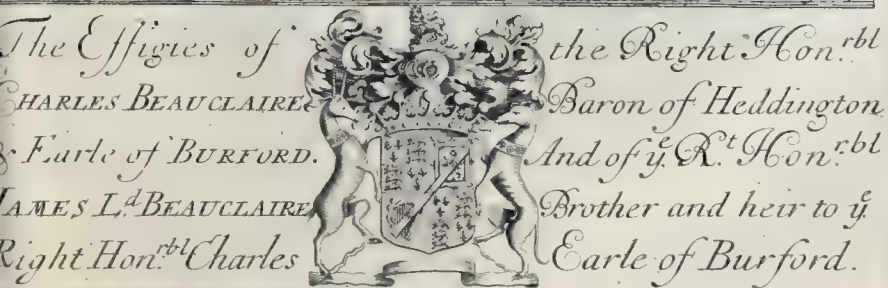 The Effigies of the Right Hon.rbl
CHARLES BEAUCLAIRE Baron of Heddington
& Earle of BURFORD. And of ye. Rt Hon.rbl
JAMES L.d BEAUCLAIRE Brother and heir to ye.
Right Hon.rbl Charles Earle of Burford.